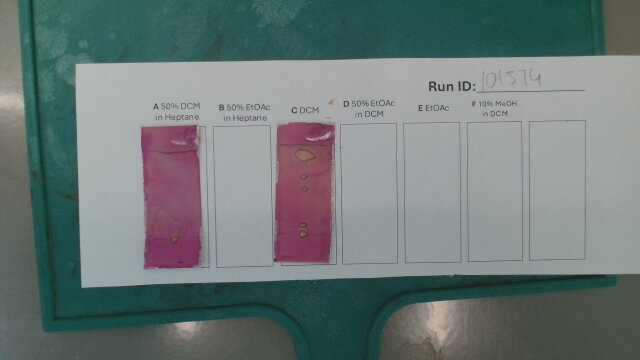 Run ID: 101574
A 50% DCM in Heptane
B 50% EtOAc in Heptane
C DCM
D 50% EtOAc in DCM
E EtOAc
F 10% MeOH in DCM